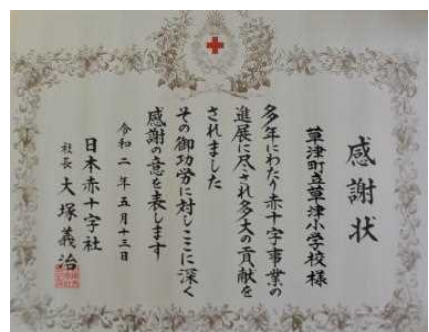 感謝状
草津町立草津小学校様
多年にわたり赤十字事業の
進展に尽され多大の貢献を
されました
その御功労に対しここに深く
感謝の意を表します
令和二年五月十三日
日本赤十字社
社長 大塚義治